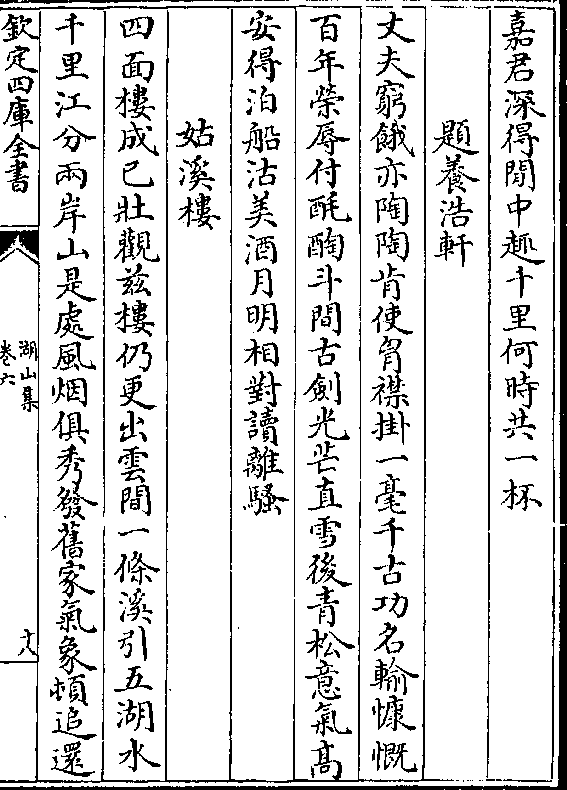 嘉君深得閒中趣千里何時共一杯
題養浩軒
丈夫窮餓亦陶陶肯使胷襟掛一毫千古功名輸慷慨
百年榮辱付酕醄斗間古劍光芒直雪後青松意氣髙
安得泊船沽美酒月明相對讀離騷
姑溪樓
四面樓成已壯觀兹樓仍更出雲間一條溪引五湖水
千里江分兩岸山是處風烟俱秀發舊家氣象頓追還
欽定四庫全書
湖山集
卷六
十八